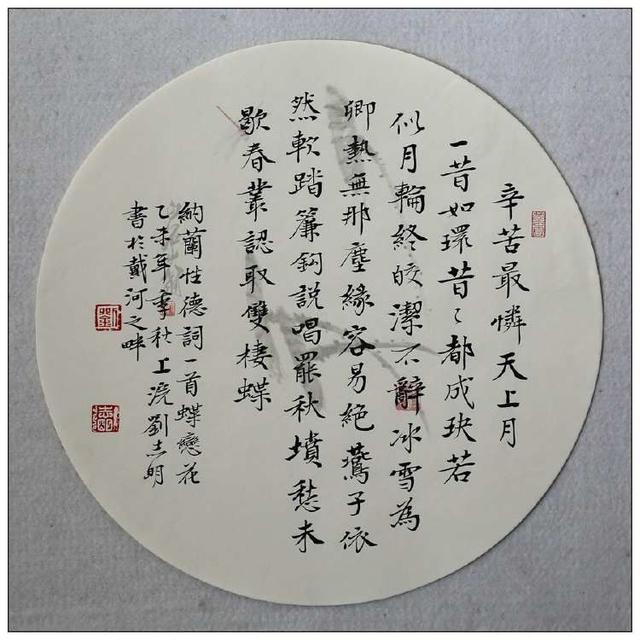 辛苦最憐天上月
一昔如環昔〻都成玦若
似月輪終皎潔不辭冰雪為
卿熱無那塵緣容易絶鷰子依
然軟踏簾鈎説唱罷秋墳愁未
歇春叢認取雙棲蝶
納蘭性德詞一首蝶戀花
乙未年季秋上浣劉志明
書於戴河之畔